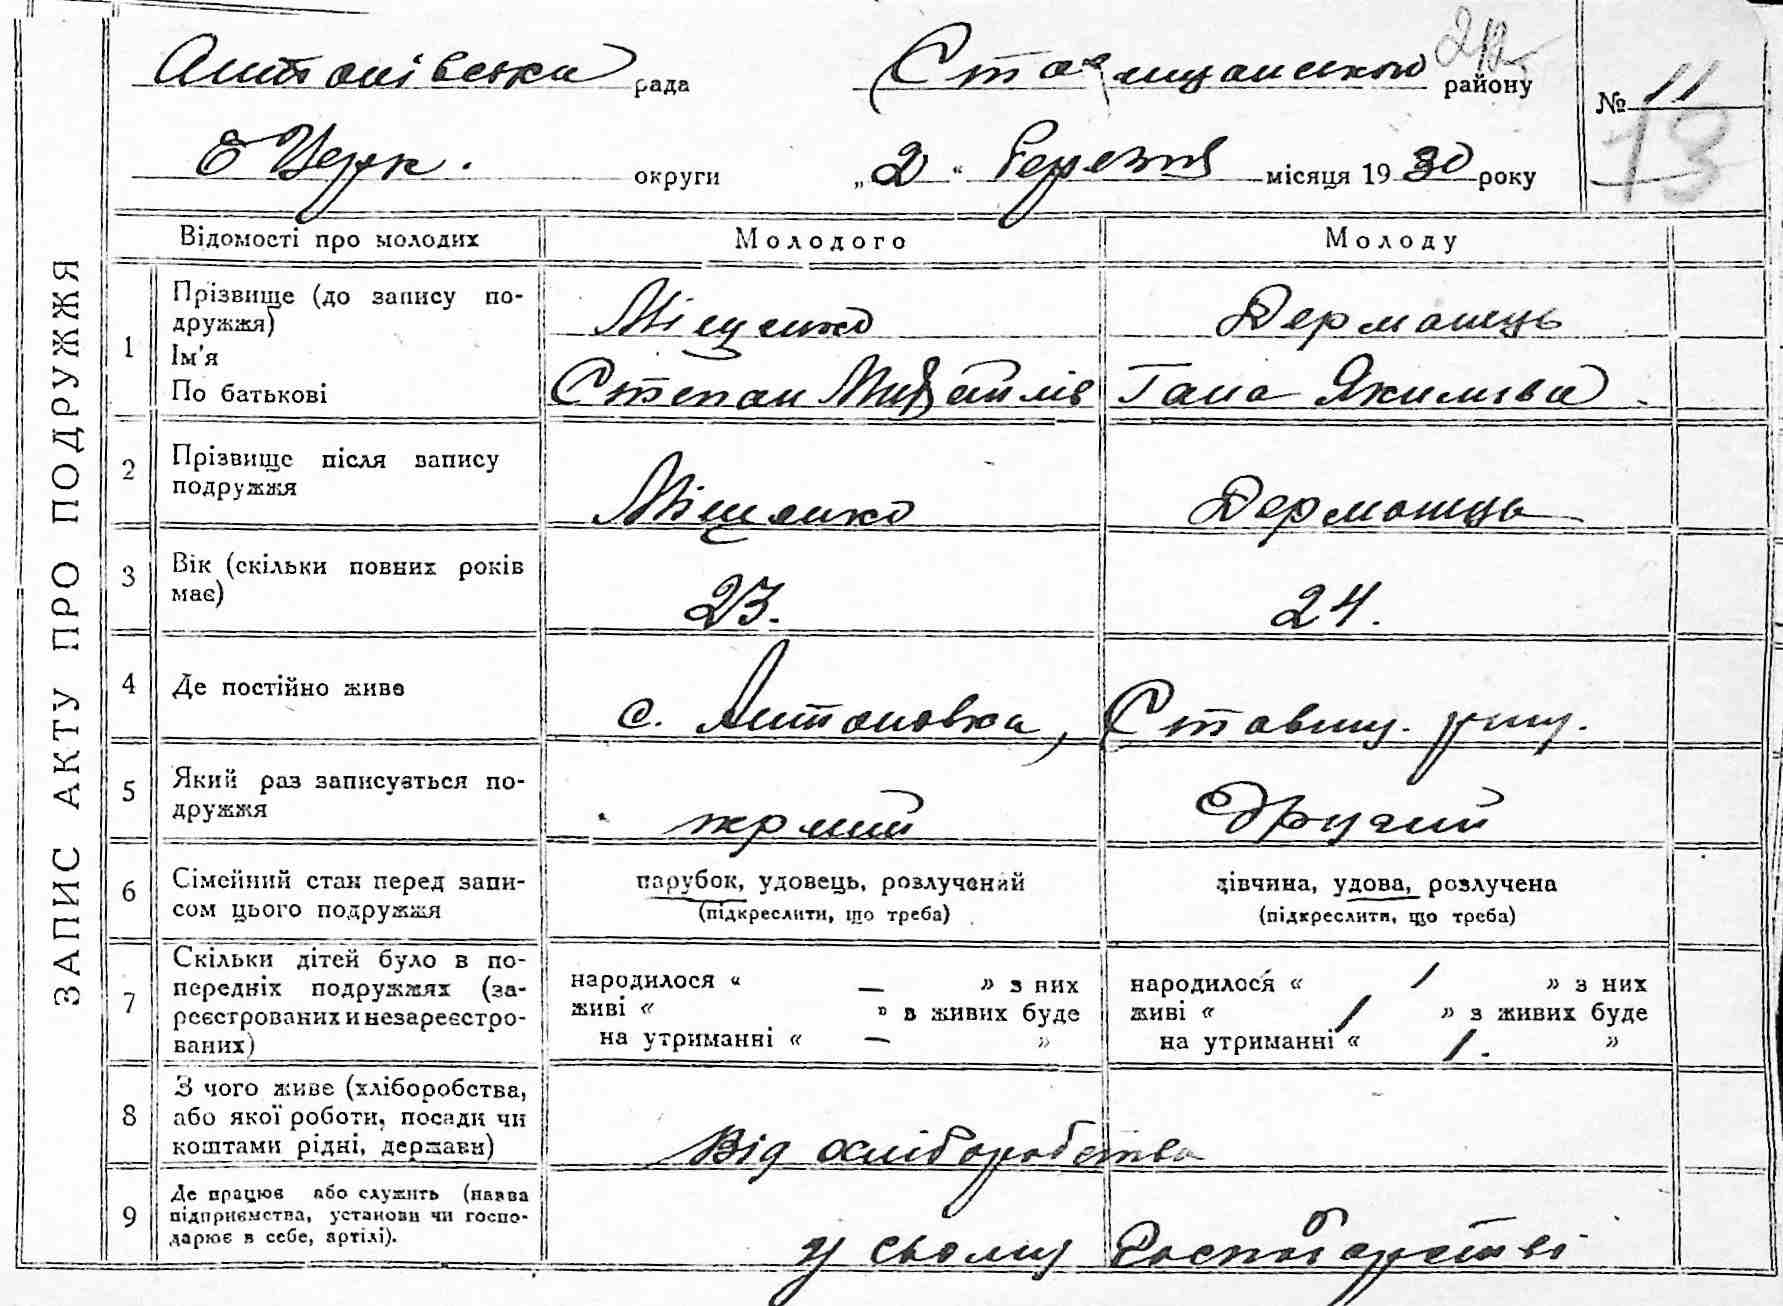 Антонівська рада Ставищанського району № 11
Б Церк. округи „2“ березня місяця 1930 року
13
ЗАПИС АКТУ ПРО ПОДРУЖЖЯ
Відомості про молодих Молодого Молоду
1 Прізвище (до запису по-
дружжя) Міщенко Дерманець
Ім'я
По батькові Степан Михайлів Гана Якимівa
2 Прізвище після запису
подружжя Міщенко Дерманець
3 Вік (скільки повних років
має) 23. 24.
4 Де постійно живе с. Антоновка, Ставищ. району.
5 Який раз записується по-
дружжя перший другий
6 Сімейний стан перед запи-
сом цього подружжя парубок, удовець, розлучений дівчина, удова, розлучена
(підкреслити, що треба) (підкреслити, що треба)
7 Скільки дітей було в по-
передніх подружжях (за-
реєстрованих и незареєстро-
ваних)
народилося « — » з них народилося « 1 » з них
живі « » з живих буде живі « 1 » з живих буде
на утриманні « — » на утриманні « 1. »
8 З чого живе (хліборобства,
або якої роботи, посади чи
коштами рідні, держави) Від хліборобства
9 Де працює або служить (назва
підприємства, установи чи госпо-
дарює в себе, артілі). у сьому господарстві